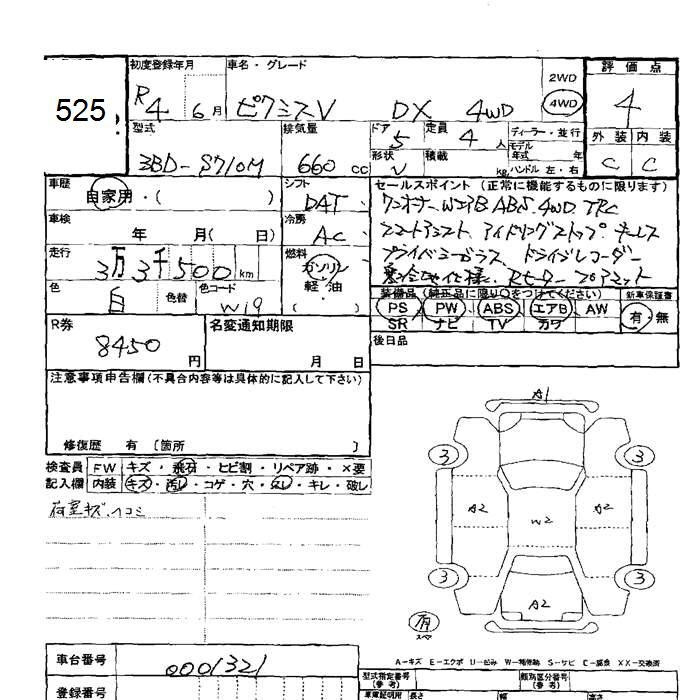 525
初度登録年月 車名・グレード 2WD 評価点
R4 6月 ピクシスV DX 4WD 4WD 4
型式 排気量 ドア 5 定員 4人 ディーラー・並行 外装 内装
3BD-S710M 660cc 形状 V 積載 kg モデル年式 年 ハンドル 左・右 C C
車歴 自家用・( ) シフト DAT セールスポイント (正常に機能するものに限ります)
車検 年 月( 日) 冷房 AC ワンオーナー WエアB ABS 4WD TRC
スマートアシスト アイドリングストップ キーレス
走行 3万3千500km 燃料 ガソリン 軽・油 ( ) プライバシーガラス ドライブレコーダー
色 白 色替 色コード W19
装備品 (純正品に限り○をつけてください) 新車保証書
PS PW ABS エアB AW 有・無
SR ナビ TV カワ
R券 8450円 名変通知期限 月 日 後日品
注意事項申告欄(不具合内容等は具体的に記入して下さい)
修復歴 有 [箇所 ]
検査員 FW キズ・飛石・ヒビ割・リペア跡・×要
記入欄 内装 キズ・汚レ・コゲ・穴・スレ・キレ・破レ
荷室キズ、ヘコミ
A1
3 3
A2 W2 A2
3 3
A2
有
スペア
A-キズ E-エクボ U-凹み W-補修跡 S-サビ C-腐食 XX-交換済
車台番号 0001321 型式指定番号(参考) 類別区分番号(参考)
登録番号 車庫証明用 長さ 幅 高さ